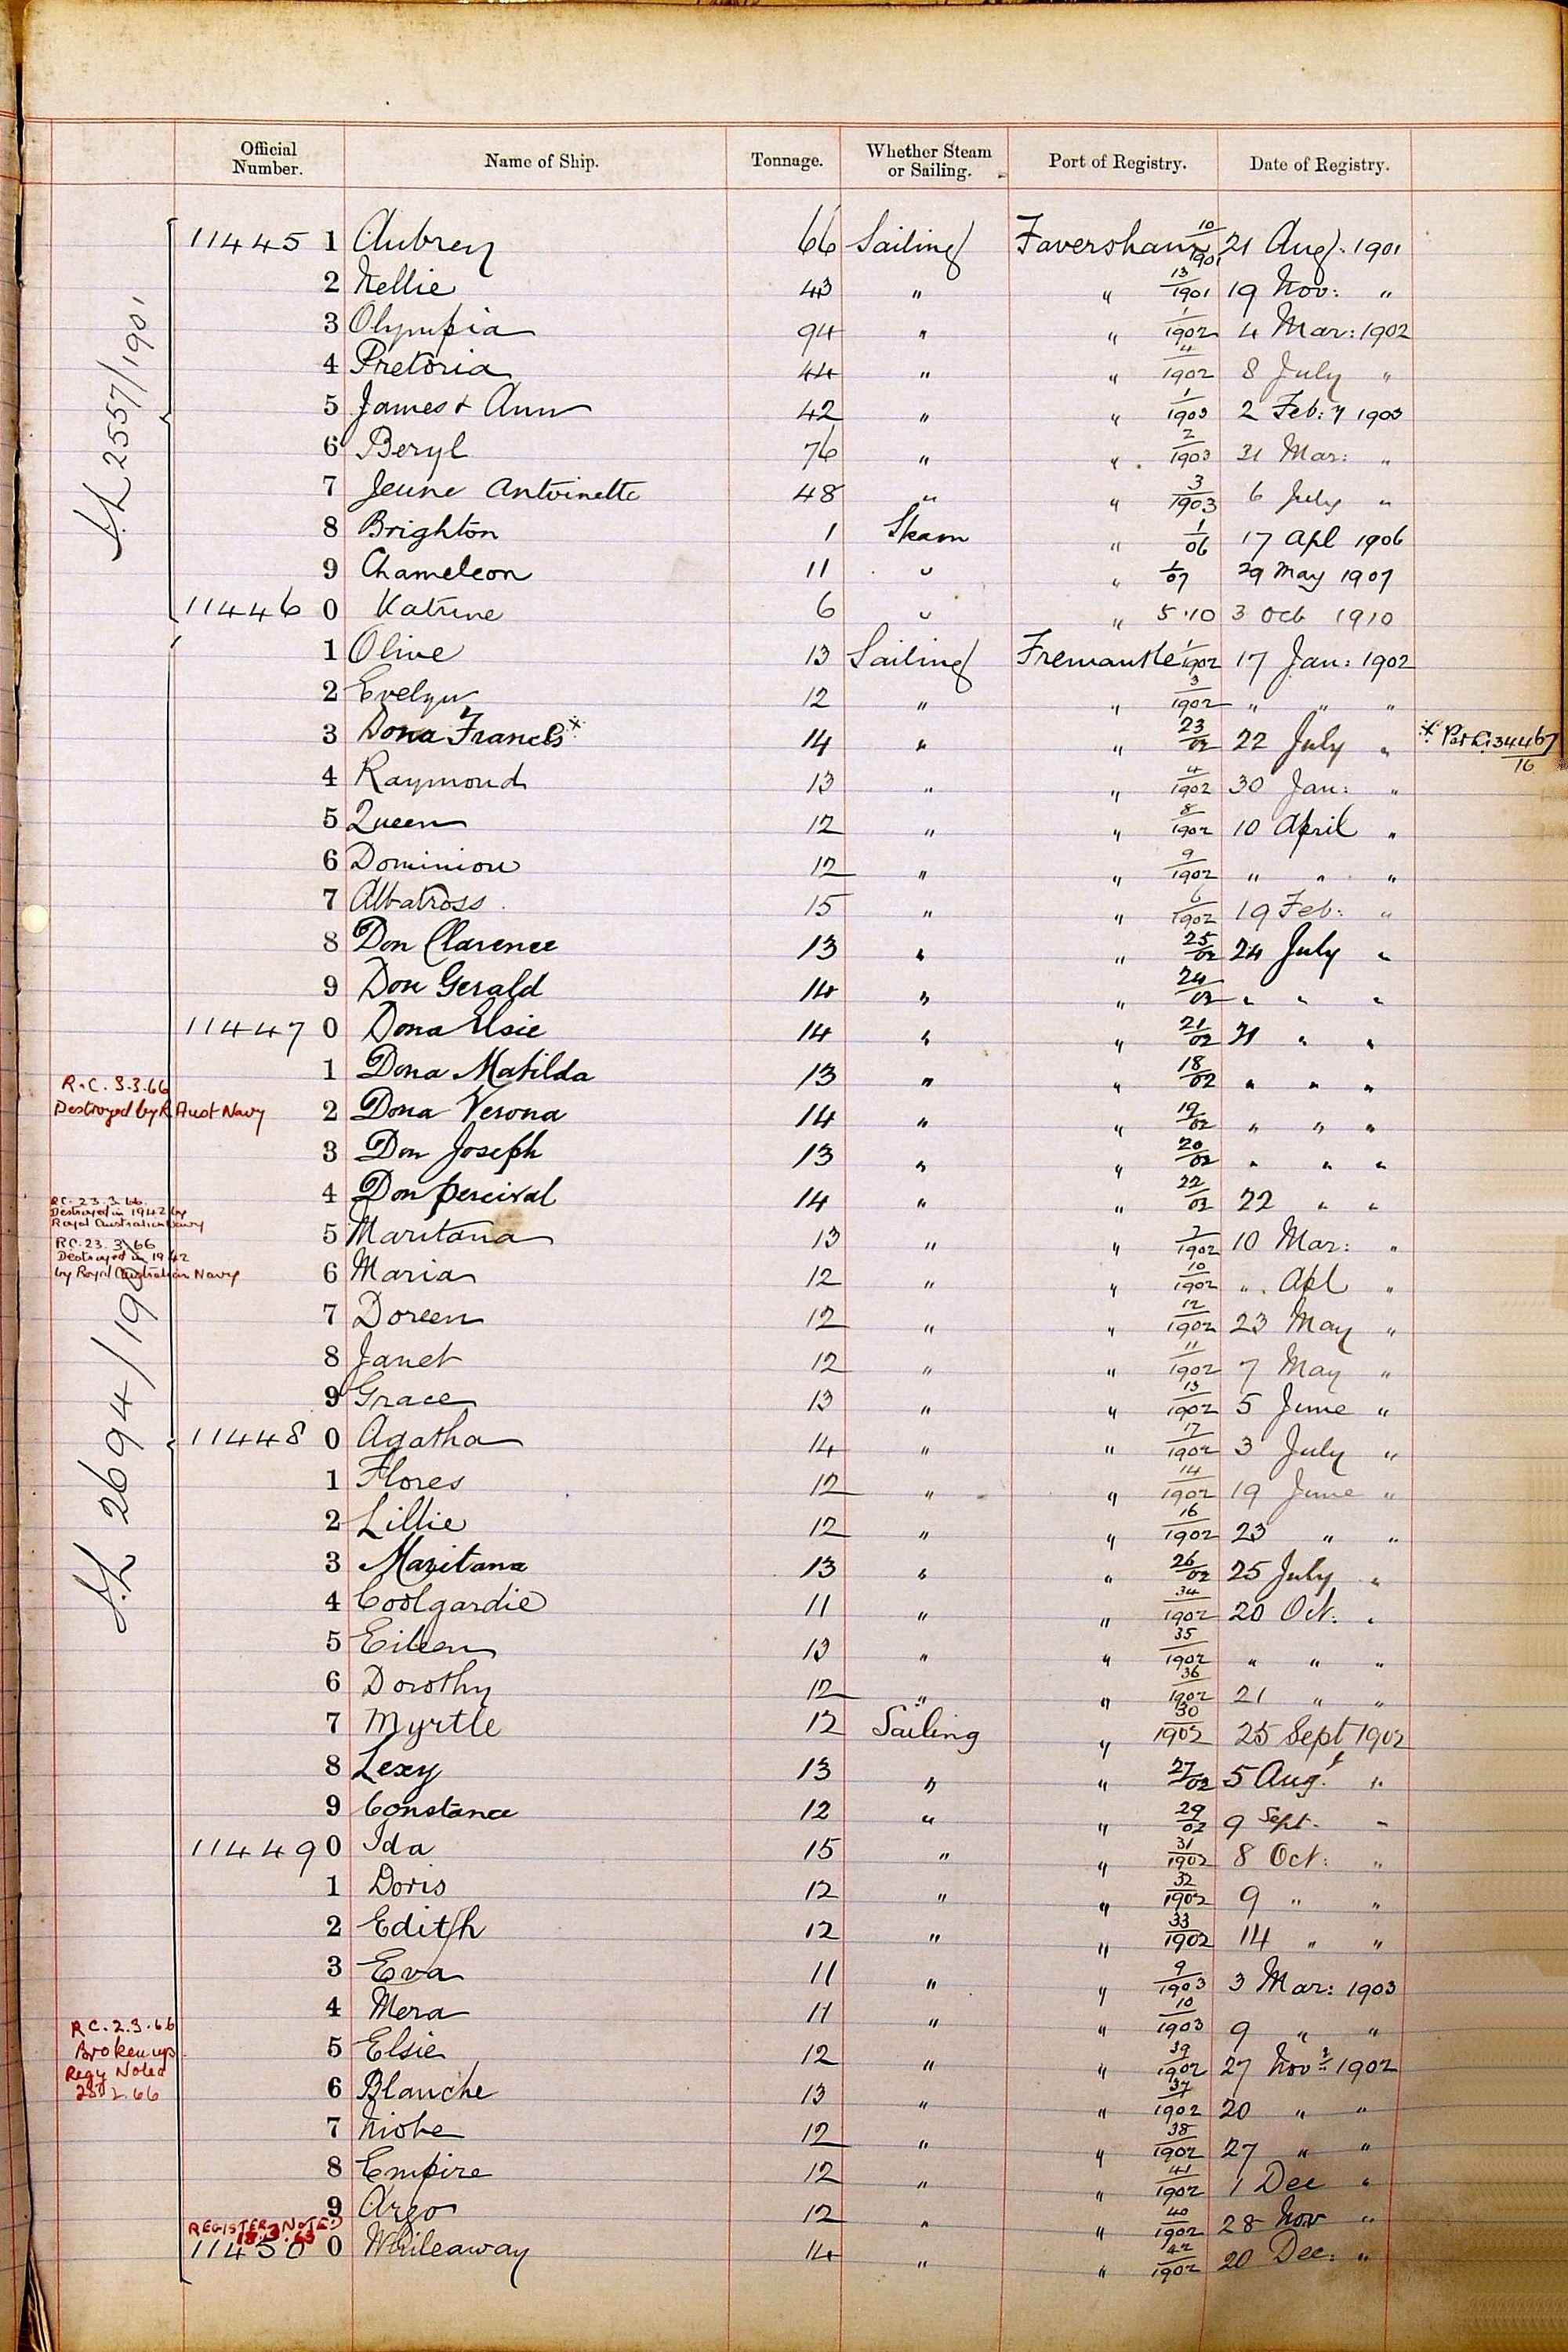 Official Number. Name of Ship. Tonnage. Whether Steam or Sailing. Port of Registry. Date of Registry.
11445 1 Aubrey 66 Sailing Faversham 10/1901 21 Aug. 1901
2 Nellie 43 " " 13/1901 19 Nov: "
3 Olympia 94 " " 1/1902 4 Mar: 1902
4 Pretoria 44 " " 4/1902 8 July "
5 James & Ann 42 " " 1/1903 2 Feb: y 1903
6 Beryl 76 " " 2/1903 31 Mar: "
7 Jeune Antoinette 48 " " 3/1903 6 July "
8 Brighton 1 Steam " 1/06 17 Apl 1906
9 Chameleon 11 " " 1/07 29 May 1907
11446 0 Katrine 6 " " 5.10 3 Oct 1910
L 2557/1901
1 Olive 13 Sailing Fremantle 1/1902 17 Jan: 1902
2 Evelyn 12 " " 3/1902 " " "
3 Dona Francis * 14 " " 23/02 22 July " * 34467/16
4 Raymond 13 " " 4/1902 30 Jan: "
5 Queen 12 " " 8/1902 10 April "
6 Dominion 12 " " 9/1902 " " "
7 Albatross 15 " " 6/1902 19 Feb: "
8 Don Clarence 13 " " 25/02 24 July "
9 Don Gerald 14 " " 24/02 " " "
11447 0 Dona Elsie 14 " " 21/02 21 " "
1 Dona Matilda 13 " " 18/02 " " "
R.C. 3.3.66
Destroyed by R Aust Navy
2 Dona Verona 14 " " 19/02 " " "
3 Don Joseph 13 " " 20/02 " " "
4 Don Percival 14 " " 22/02 22 " "
RC. 23.3.66.
Destroyed in 1942 by
Royal Australian Navy
5 Maritana 13 " " 7/1902 10 Mar: "
RC. 23.3.66
Destroyed in 1942
by Royal Australian Navy
6 Maria 12 " " 10/1902 " Apl "
7 Doreen 12 " " 12/1902 23 May "
8 Janet 12 " " 11/1902 7 May "
9 Grace 13 " " 13/1902 5 June "
11448 0 Agatha 14 " " 17/1902 3 July "
1 Flores 12 " " 14/1902 19 June "
2 Lillie 12 " " 16/1902 23 " "
3 Maritana 13 " " 26/02 25 July "
4 Coolgardie 11 " " 34/1902 20 Oct: "
5 Eileen 13 " " 35/1902 " " "
6 Dorothy 12 " " 36/1902 21 " "
7 Myrtle 12 Sailing " 30/1902 25 Sept 1902
8 Lexy 13 " " 27/02 5 Augt "
9 Constance 12 " " 29/02 9 Sept. "
11449 0 Ida 15 " " 31/1902 8 Oct: "
1 Doris 12 " " 32/1902 9 " "
2 Edith 12 " " 33/1902 14 " "
3 Eva 11 " " 9/1903 3 Mar: 1903
4 Mera 11 " " 10/1903 9 " "
5 Elsie 12 " " 39/1902 27 Novr 1902
R C. 2.3.66
Broken up
Regy Noted
25.2.66
6 Blanche 13 " " 37/1902 20 " "
7 Niobe 12 " " 38/1902 27 " "
8 Empire 12 " " 41/1902 1 Dec "
9 Argo 12 " " 40/1902 28 Nov "
REGISTER NOTED
11450 0 Whileaway 14 " " 42/1902 20 Dec: "
L 2694/190